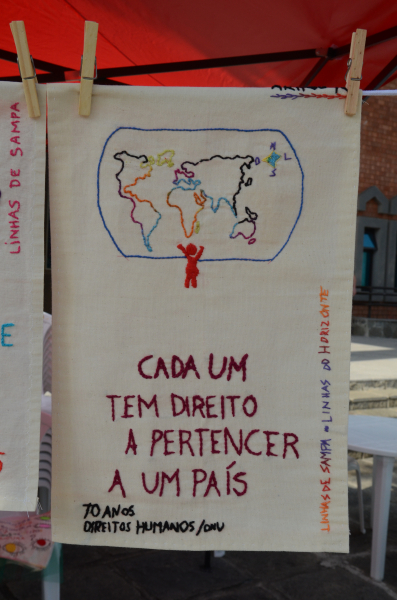 LINHAS DE SAMPA
N
O L
S
CADA UM
TEM DIREITO
A PERTENCER
A UM PAÍS
70 ANOS
DIREITOS HUMANOS/ONU
LINHAS DE SAMPA e LINHAS DO HORIZONTE
E